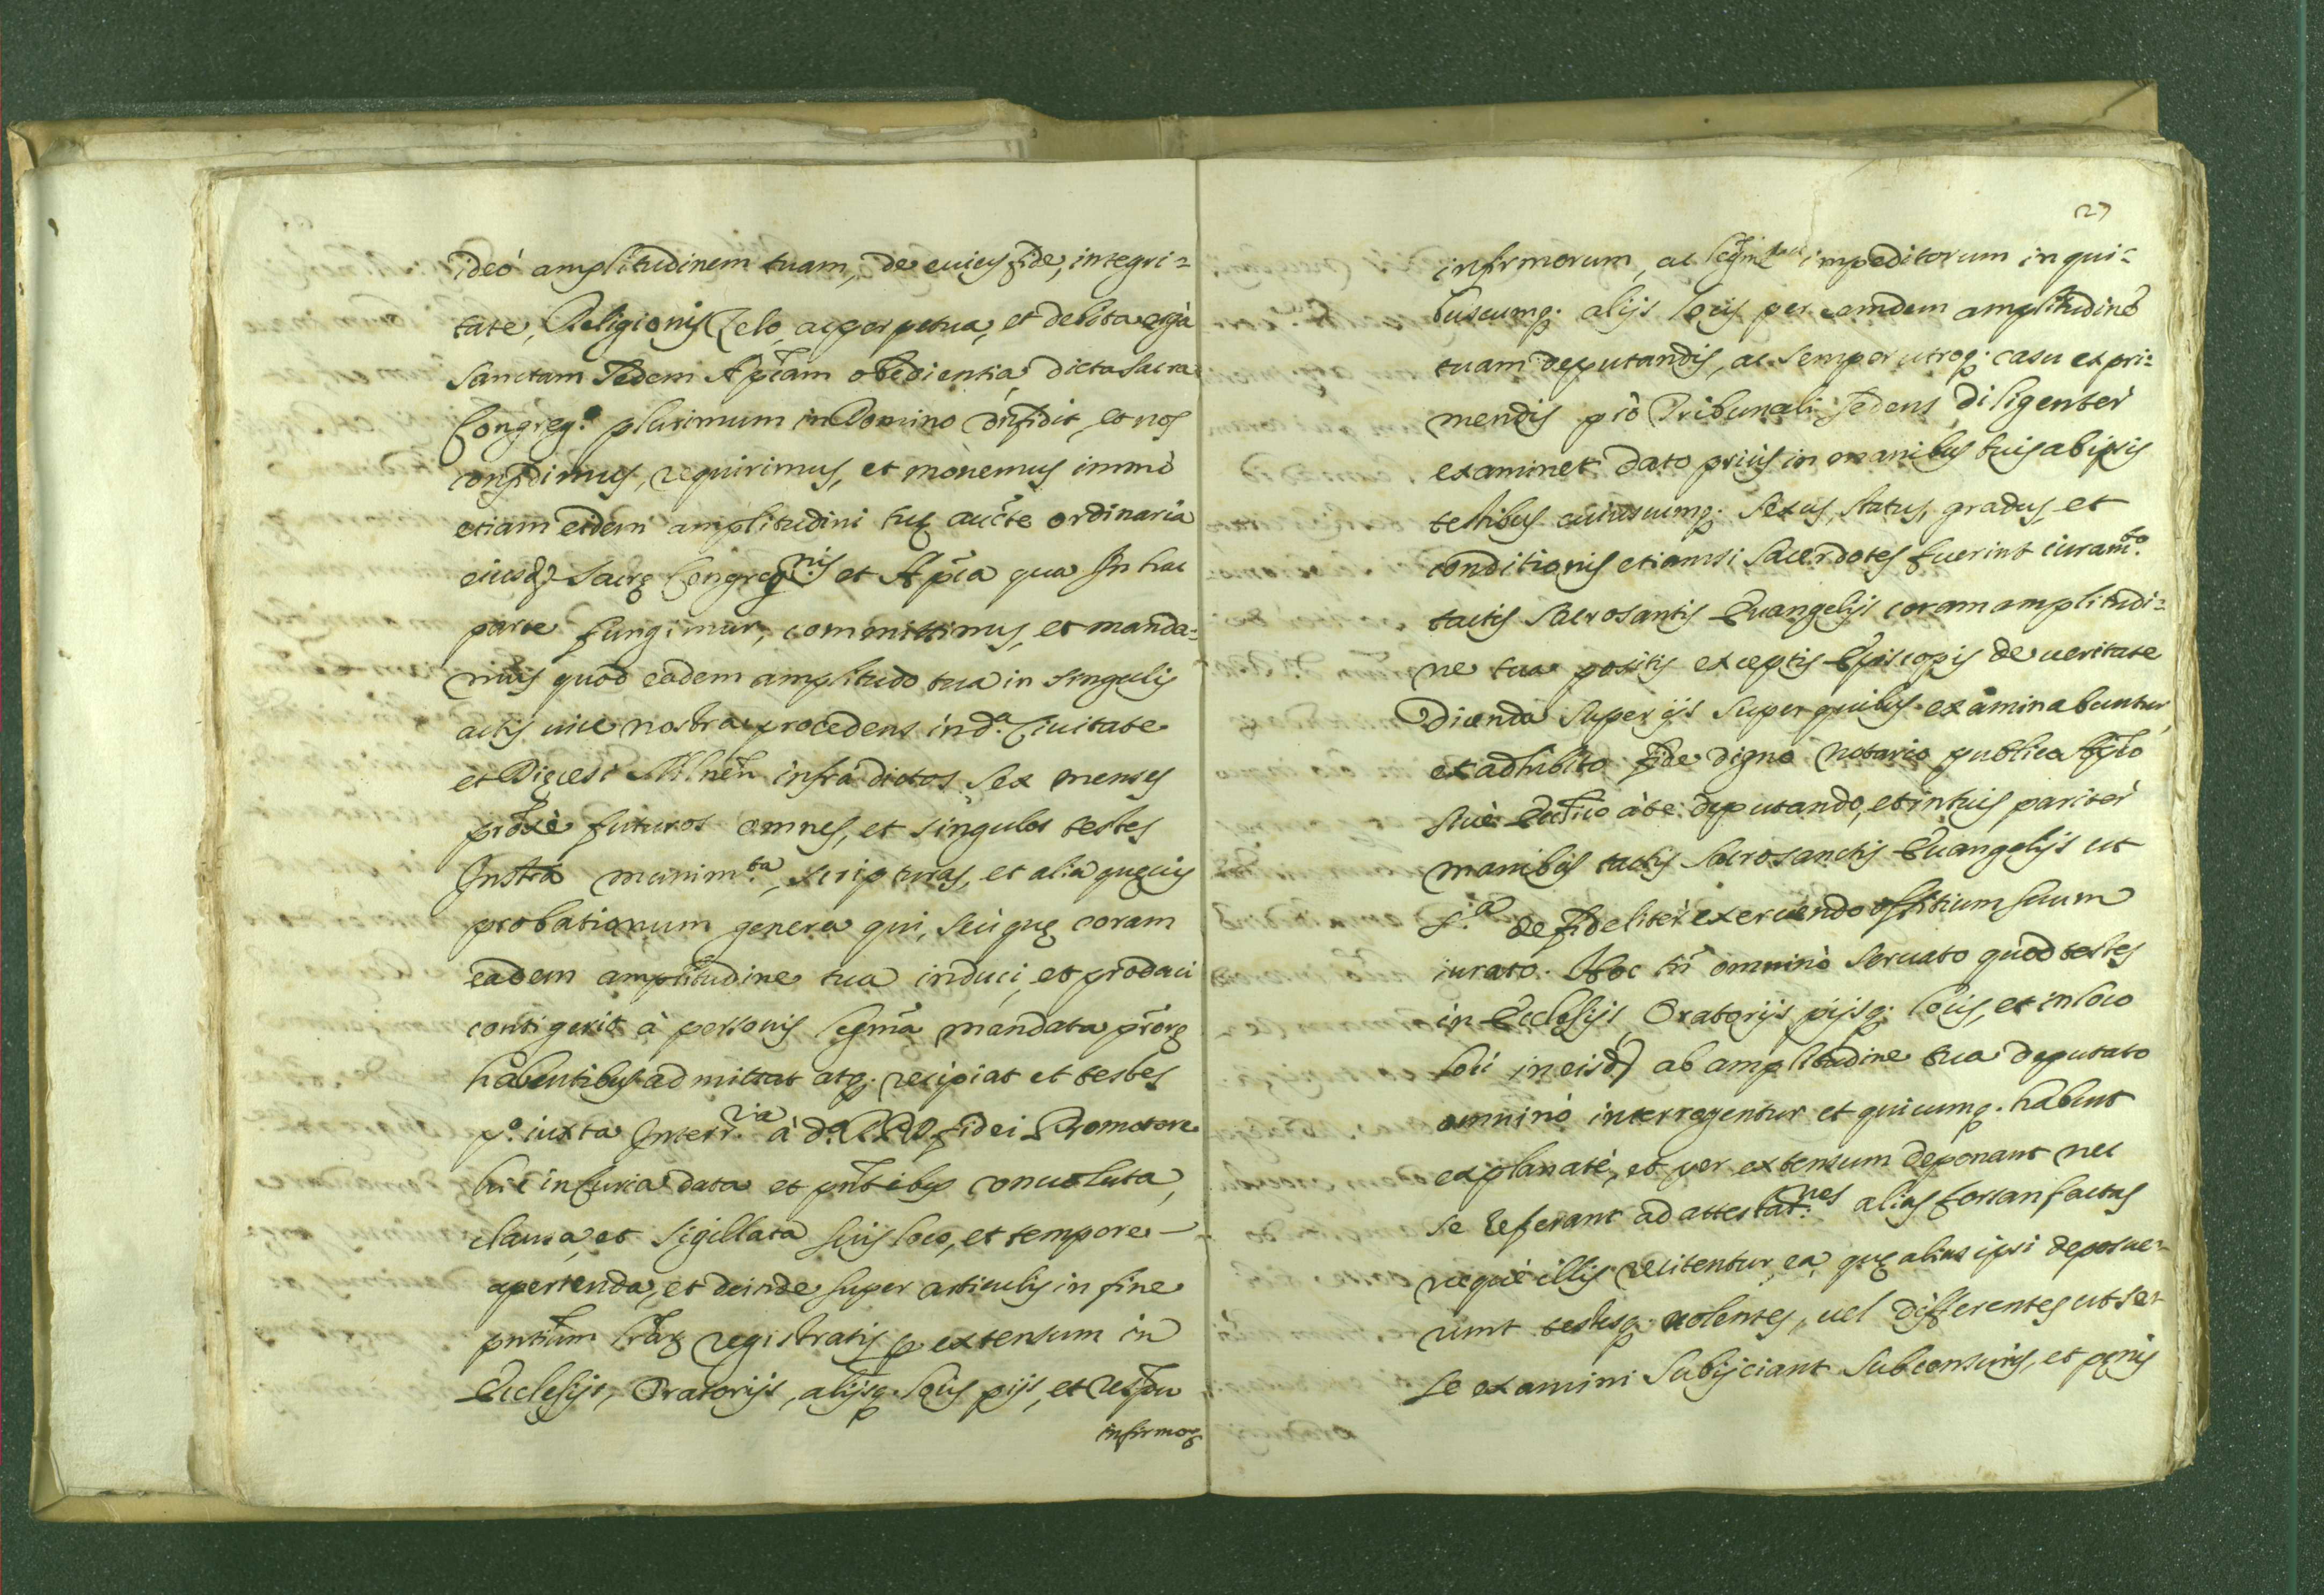 ideò amplitudinem tuam, de cuius fide, integri=
tate, Religionis Zelo, ac perpetua, et debita ergà
Sanctam Sedem Ap̃cam obedientia, dicta Sacra
Congreg.º plurimum in Domino confidit, et nos
confidimus, requirimus, et monemus immò
etiam eidem amplitudini tuę aucte ordinaria
eiusd. Sacrę Congreg.nis et Ap̃ca qua In hac
parte fungimur, committimus, et manda=
mus quod eadem amplitudo tua in singulis
actis vice nostra procedens in d.a Civitate
et Dięcesi infrà dictos sex menses
proxè futuros omnes, et singulos testes
Instrã munim.ta, scripturas, et alia quęvis
probationum genera qui, seù quę coram
eadem amplitudine tua induci, et produci
contigerit à personis legm̃a mandata
habentibus admittat atq. recipiat et testes
p.º iuxta Interr.ria à d.º fidei Promotore
hic in Curia data et pñtibus convoluta,
clausa, et sigillata suis loco, et tempore
aperienda, et deinde super articulis in fine
pñtium registratis p extensum in
Ecclesijs, Oratorijs, alijsq. locis pijs, et
infirmor
27
infirmorum, ac impeditorum in qui=
buscumq. alijs locis per eamdem amplitudinẽ
tuam deputandis, ac semper utroq. casu expri=
mendis prò Tribunali sedens diligenter
examinet dato prius in manibus tuis ab ipsis
testibus cuiuscumq. sexus, status, gradus, et
conditionis etiamsi sacerdotes fuerint iuram.to
tactis Sacrosantis Evangelijs coram amplitudi=
ne tua positis exceptis Episcopis de veritate
Dicenda super ijs super quibus examinabuntur,
et adhibito fide digno Notario publico
sive à te deputando, et in tuis pariter
manibus tactis Sacrosanctis Evangelijs ut
de fideliter exercendo offitium suum
iurato. Hoc tñ omninò servato quod testes
in Ecclesijs, Oratorijs pijsq. locis, et in loco
loci in eisd. ab amplitudine tua deputato
omninò interrogentur et quicumq. habent
explanatè, et per extensum deponant nec
se referant ad attestat.nes alias forsan factas
nequè illis recitentur ea, quę alias ipsi deposue=
runt testesq. nolentes, vel differentes ut se=
se examini subijciant sub censuris, et pęnis